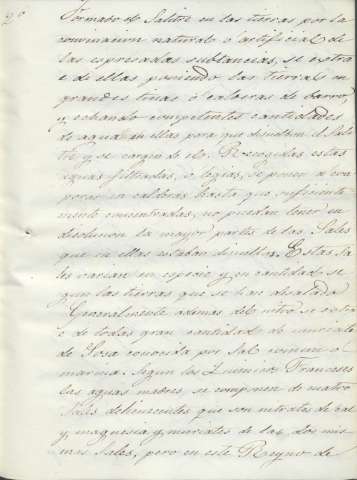 Formado el Salitre en las tierras por la
convinacion natural ó artificial de
las expresadas substancias, se extra
e de ellas poniendo las tierras en
grandes tinas ó calderas de barro,
y echando competentes cantidades
de agua en ellas para que disuelvan el Sali
tre y se carguen de él. Recogidas estas
aguas filtradas, ó legias, se ponen a eva
porar en calderas hasta que suficiente
mente concentradas, no puedan tener en
disolucion la mayor parte de las Sales
que en ellas estaban disueltas. Estas Sa
les varian en especie y en cantidad se
gun las tierras que se han desalado
Generalmente ademas del nitro se extra
e de todas gran cantidad de muriato
de Sosa conocida por Sal comun ó
marina. Segun los Quimicos Franceses
las aguas madres, se componen de cuatro
Sales delicuescentes que son nitrates de cal
y magnesia y muriates de las dos mis
mas Sales, pero en este Reyno de